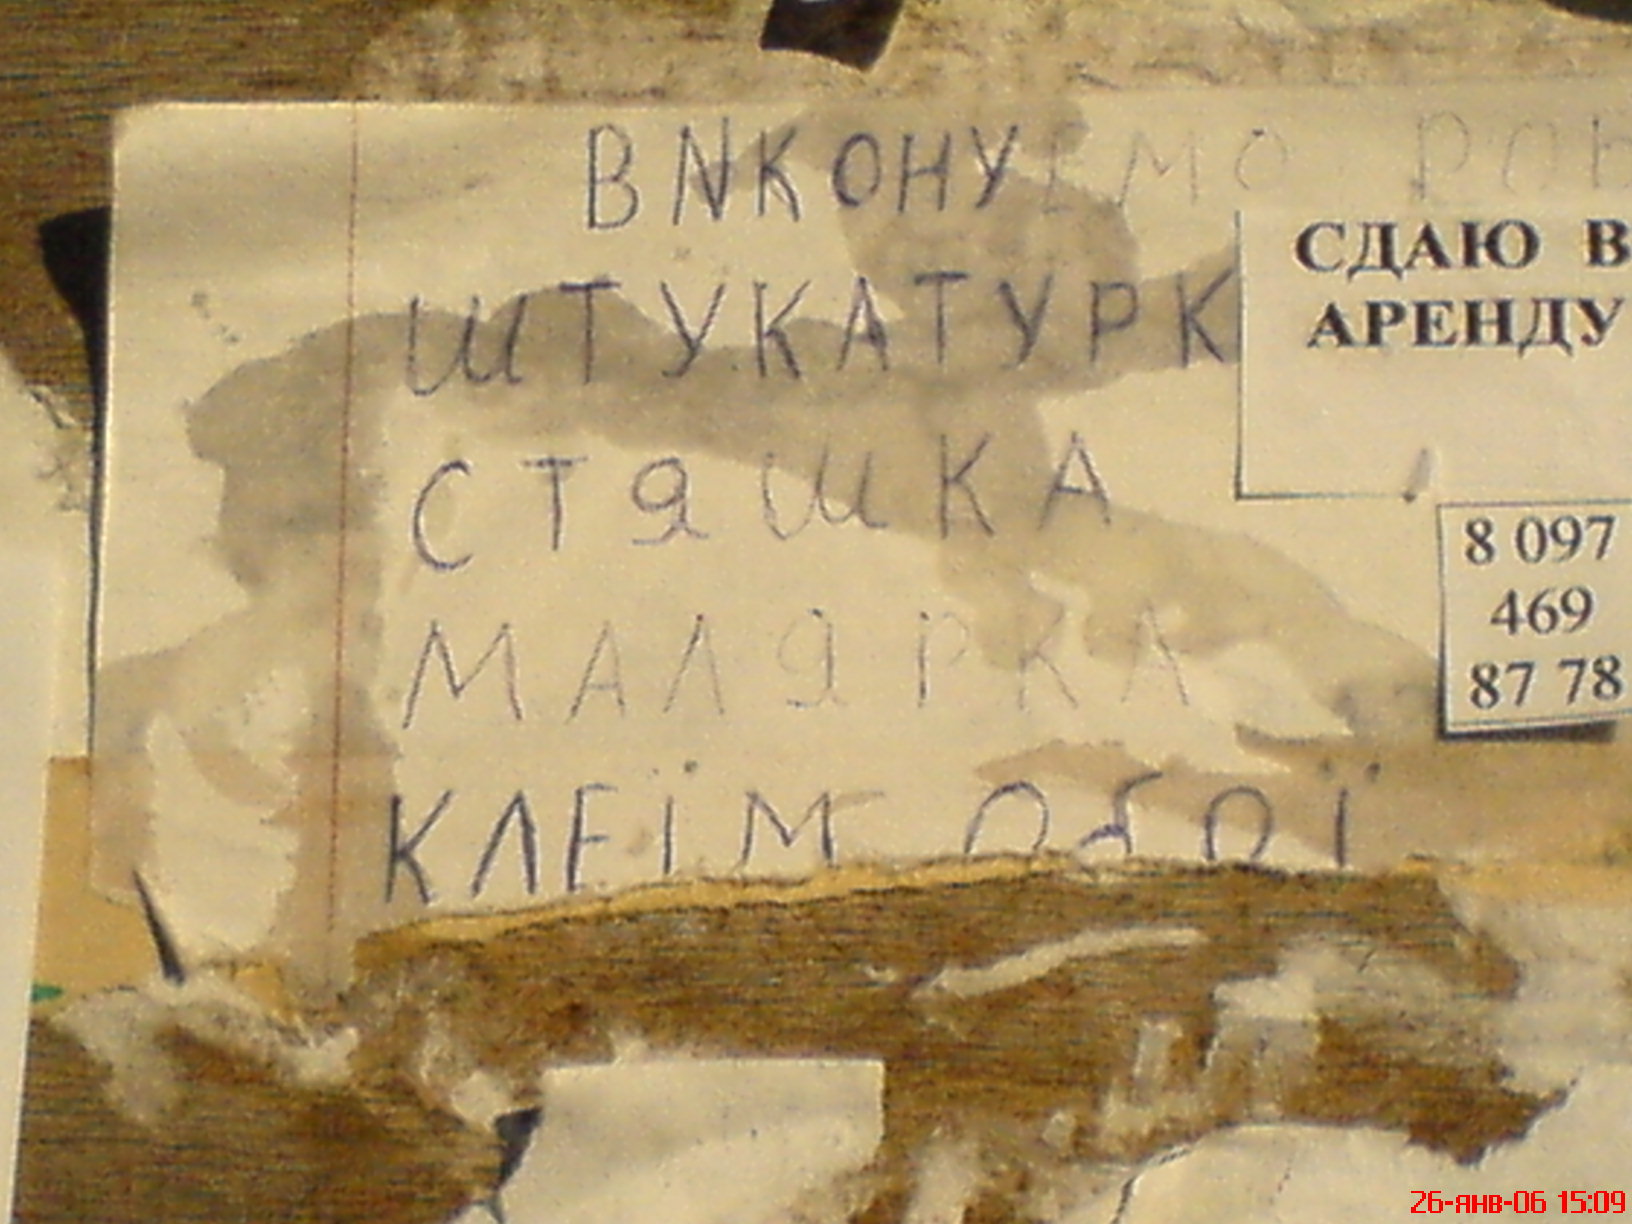 ВИКОНУЕМО РОБ
ШТУКАТУРК
СТЯШКА
МАЛЯРКА
КЛЕЇМ ОБОЇ
СДАЮ В
АРЕНДУ
8 097
469
87 78
26-янв-06 15:09